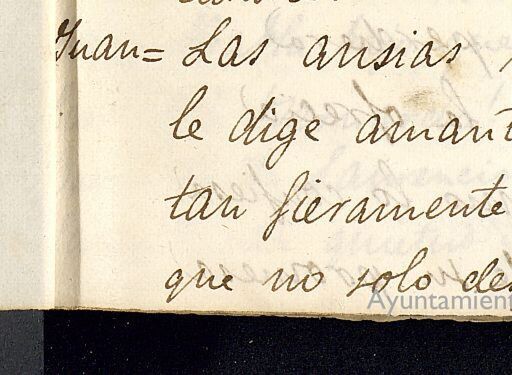 Juan= Las ansias
le dige amant
tan fieramente
que no solo des
Ayuntamient